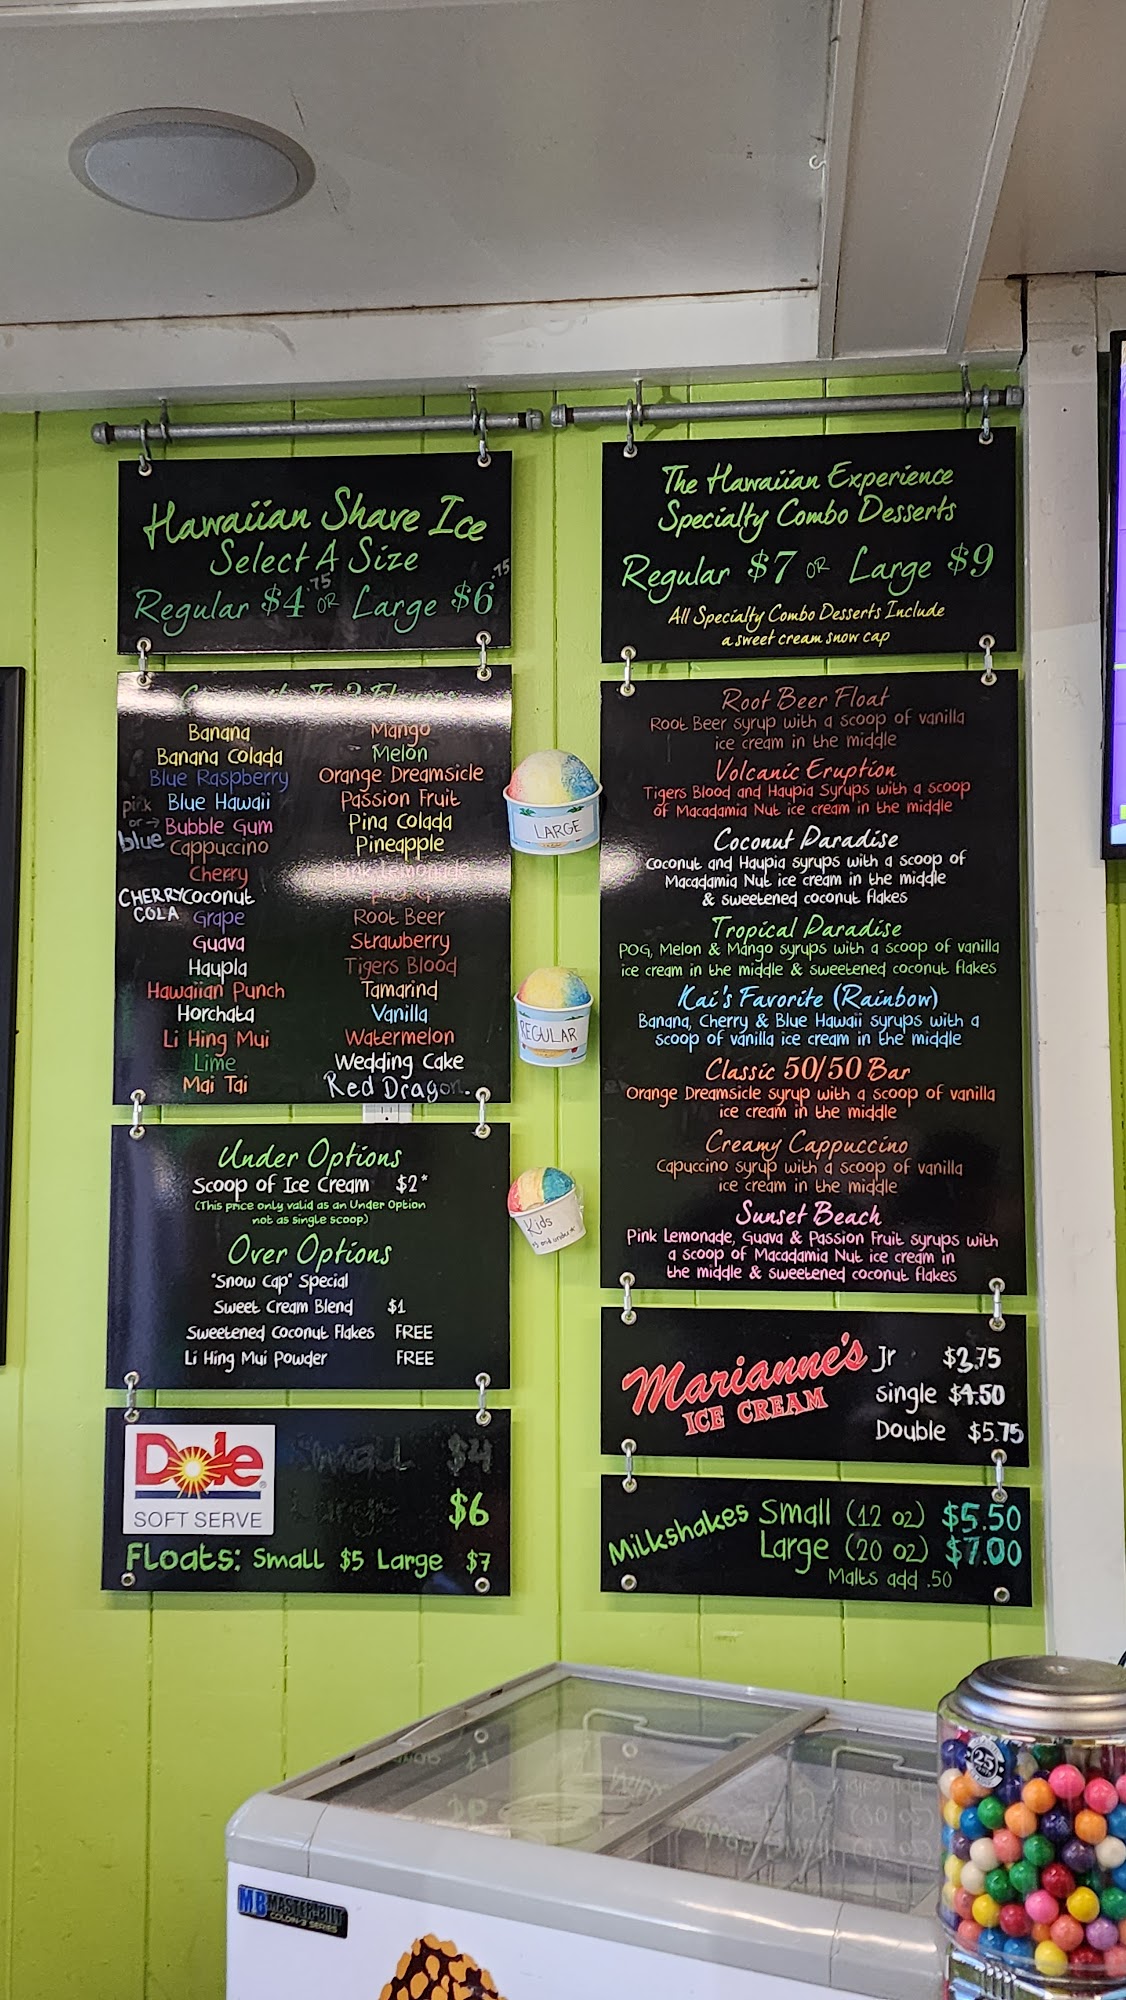 Hawaiian Shave Ice
Select A Size
Regular $4.75 OR Large $6.75
Banana
Banana Colada
Blue Raspberry
Blue Hawaii
pink or → blue Bubble Gum
Cappuccino
Cherry
CHERRY COLA
Coconut
Grape
Guava
Haupia
Hawaiian Punch
Horchata
Li Hing Mui
Lime
Mai Tai
Mango
Melon
Orange Dreamsicle
Passion Fruit
Pina Colada
Pineapple
Pink Lemonade
Root Beer
Strawberry
Tigers Blood
Tamarind
Vanilla
Watermelon
Wedding Cake
Red Dragon.
Under Options
Scoop of Ice Cream $2*
(This price only valid as an Under Option
not as single scoop)
Over Options
"Snow Cap" Special
Sweet Cream Blend $1
Sweetened Coconut Flakes FREE
Li Hing Mui Powder FREE
Dole
SOFT SERVE
Small $4
Large $6
Floats: Small $5 Large $7
LARGE
REGULAR
Kids
The Hawaiian Experience
Specialty Combo Desserts
Regular $7 OR Large $9
All Specialty Combo Desserts Include
a sweet cream snow cap
Root Beer Float
Root Beer syrup with a scoop of vanilla
ice cream in the middle
Volcanic Eruption
Tigers Blood and Haupia Syrups with a scoop
of Macadamia Nut ice cream in the middle
Coconut Paradise
Coconut and Haupia syrups with a scoop of
Macadamia Nut ice cream in the middle
& sweetened coconut flakes
Tropical Paradise
POG, Melon & Mango syrups with a scoop of vanilla
ice cream in the middle & sweetened coconut flakes
Kai's Favorite (Rainbow)
Banana, Cherry & Blue Hawaii syrups with a
scoop of vanilla ice cream in the middle
Classic 50/50 Bar
Orange Dreamsicle syrup with a scoop of vanilla
ice cream in the middle
Creamy Cappuccino
Capuccino syrup with a scoop of vanilla
ice cream in the middle
Sunset Beach
Pink Lemonade, Guava & Passion Fruit syrups with
a scoop of Macadamia Nut ice cream in
the middle & sweetened coconut flakes
Marianne's
ICE CREAM
Jr $3.75
Single $4.50
Double $5.75
Milkshakes Small (12 oz) $5.50
Large (20 oz) $7.00
Malts add .50
25
MB MASTER-BILT